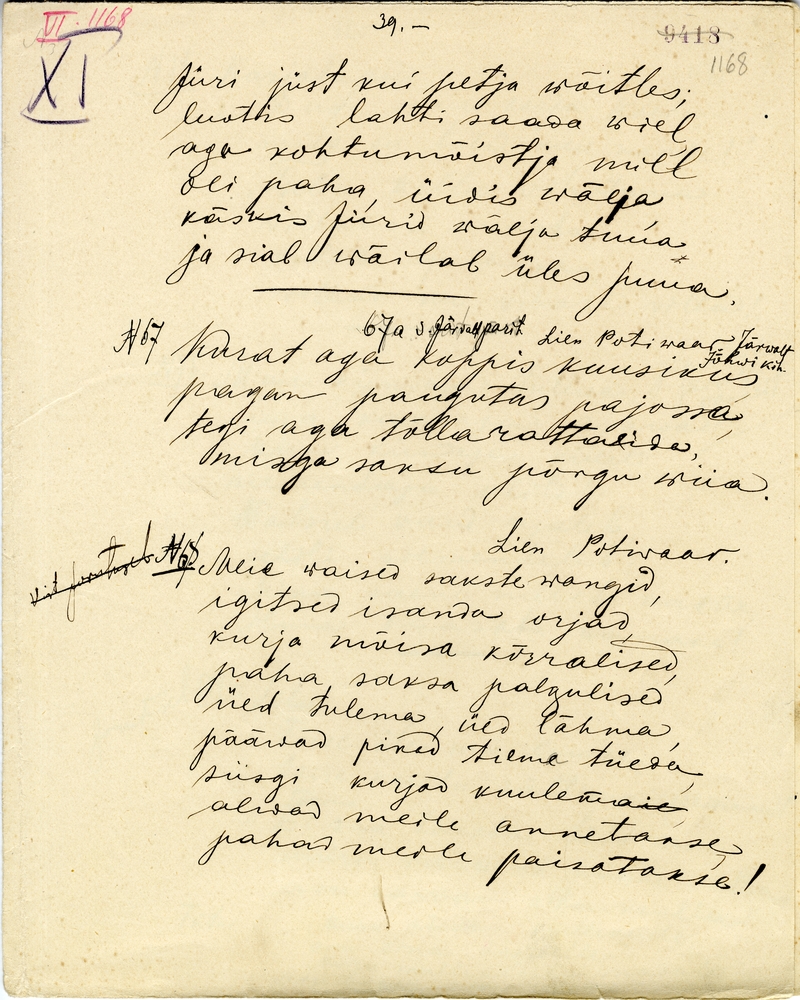 VI. 1168
39.—
9418
1168
XI
Jüri just kui petja wõitles,
luotis lahti saada wiel
aga kohtumõistja mill
oli paha, üidis wälja
käskis Jürid wälja tuua
ja sial wäilab üles puua.
67a S. Järwalt parit Lien Potiwaar Järwalt
Jõhwi kih.
N 67 Kurat aga koppis kuusikus
pagan paugutas pajossa,
tegi aga tõllarattaida,
misga saksu põrgu wiia.
Lien Potiwaar.
N68 Meie waised sakste wangid,
igitsed isanda orjad,
kurja mõisa kõrralised,
paha saksa palgulised
üed tulema, üed lähma,
pääwad pikad tieme tüeda,
siisgi kurjad kuulemaie
alwad meile annetakse,
pahad meile paisatakse!